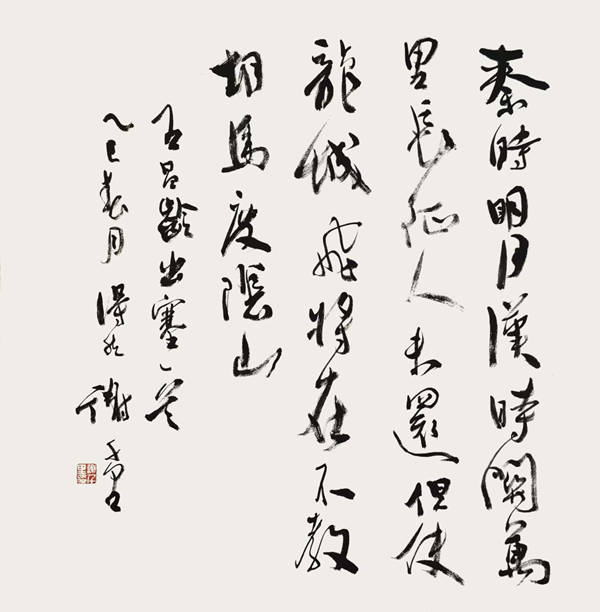 秦時明月漢時關萬
里長征人未還但使
龍城飛將在不教
胡馬度陰山
王昌齡出塞一首
乙巳春月 謝